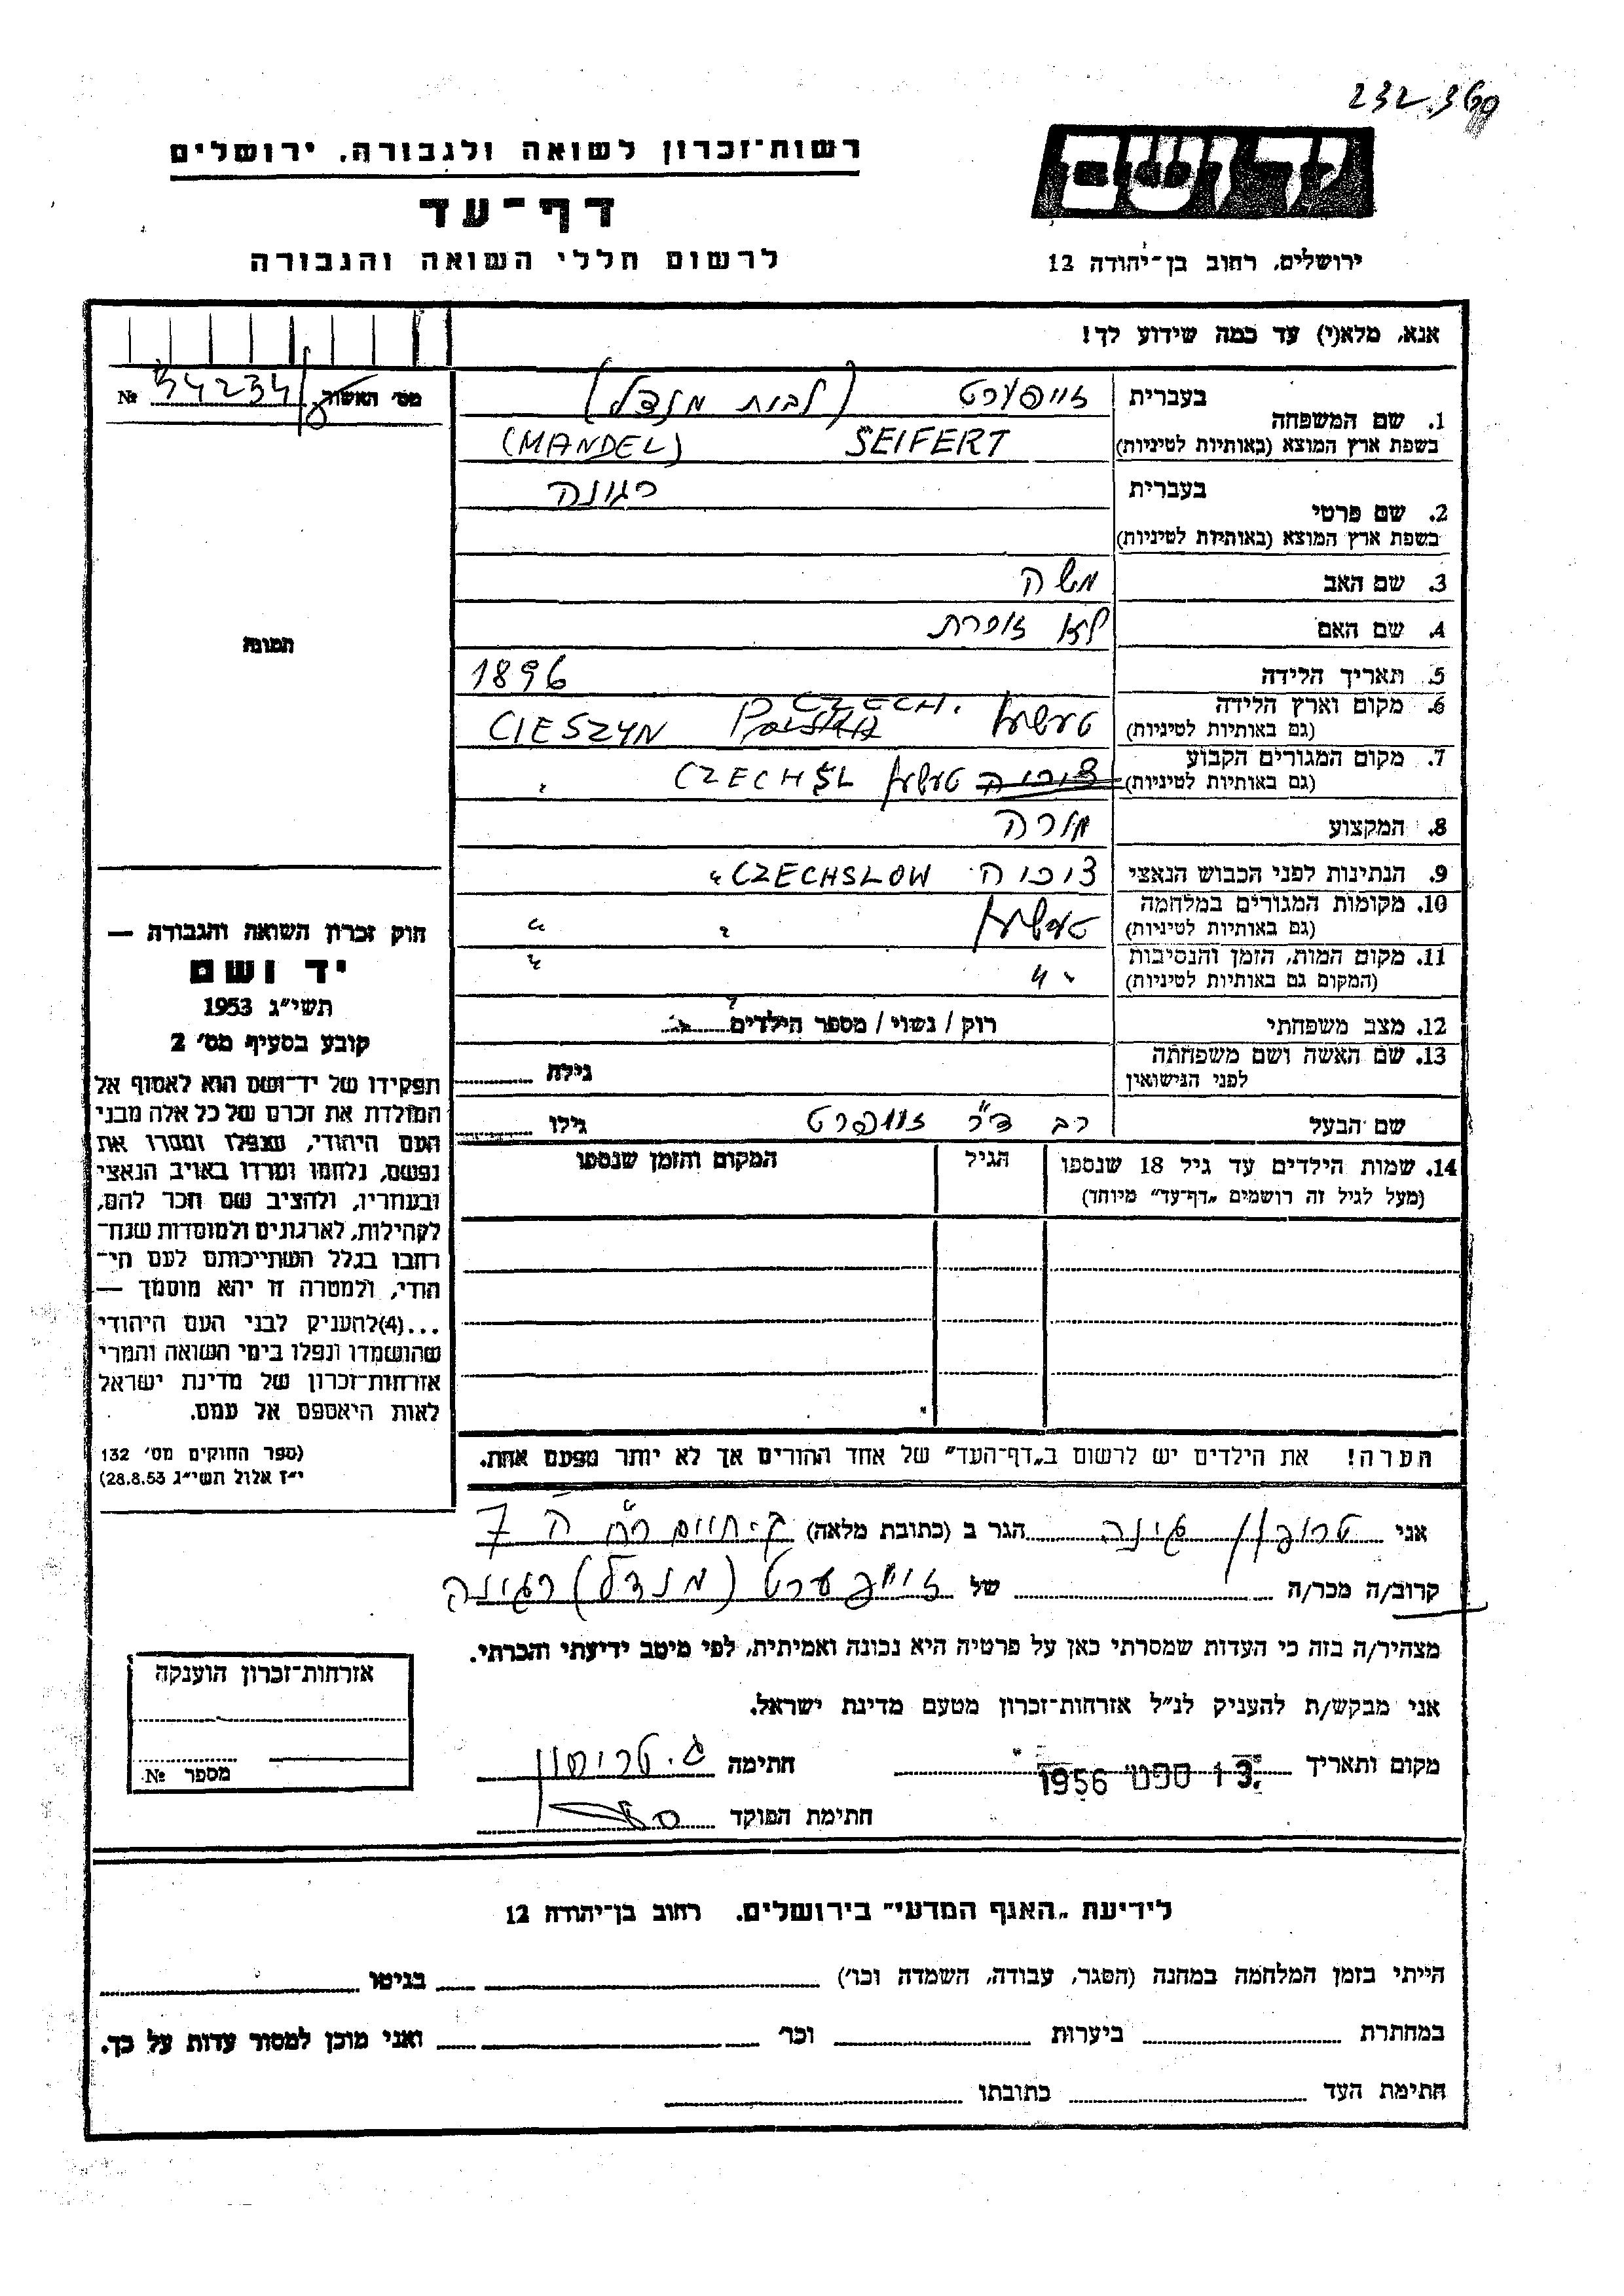 232.360
יד ושם
רשות־זכרון לשואה ולגבורה, ירושלים
דף־עד
לרשום חללי השואה והגבורה
ירושלים, רחוב בן־יהודה 12
אנא, מלא(י) עד כמה שידוע לך!
מס׳ האשור № 34234
1. שם המשפחה
בעברית זייפערט (לבית מנדל)
בשפת ארץ המוצא (באותיות לטיניות) SEIFERT (MANDEL)
2. שם פרטי
בעברית רגינה
בשפת ארץ המוצא (באותיות לטיניות)
3. שם האב משה
4. שם האם לא זוכרת
5. תאריך הלידה 1896
6. מקום וארץ הלידה (גם באותיות לטיניות) טעשען CZECH. CIESZYN
7. מקום המגורים הקבוע (גם באותיות לטיניות) טעשען CZECHSL "
8. המקצוע מורה
9. הנתינות לפני הכבוש הנאצי צ'כיה CZECHSLOW "
10. מקומות המגורים במלחמה (גם באותיות לטיניות) טעשען " "
11. מקום המות, הזמן והנסיבות (המקום גם באותיות לטיניות) " "
12. מצב משפחתי רוק / נשוי / מספר הילדים
13. שם האשה ושם משפחתה לפני הנישואין גילה
שם הבעל רב ד"ר זייפרט גילו
14. שמות הילדים עד גיל 18 שנספו (מעל לגיל זה רושמים „דף־עד" מיוחד) הגיל המקום והזמן שנספו
הערה! את הילדים יש לרשום ב„דף־העד" של אחד ההורים אך לא יותר מפעם אחת.
תמונה
חוק זכרון השואה והגבורה —
יד ושם
תשי״ג 1953
קובע בסעיף מס׳ 2
תפקידו של יד־ושם הוא לאסוף אל
המולדת את זכרם של כל אלה מבני
העם היהודי, שנפלו ומסרו את
נפשם, נלחמו ומרדו באויב הנאצי
ובעוזריו, ולהציב שם וזכר להם,
לקהילות, לארגונים ולמוסדות שנח־
רבו בגלל השתייכותם לעם הי־
הודי, ולמטרה זו יהא מוסמך —
...(4) להעניק לבני העם היהודי
שהושמדו ונפלו בימי השואה והמרי
אזרחות־זכרון של מדינת ישראל
לאות היאספם אל עמם.
(ספר החוקים מס׳ 132
י״ז אלול תשי״ג 28.8.53)
אני הגר ב (כתובת מלאה) ק. חיים 7
קרוב/ה מכר/ה של זייפערט (מנדל) רגינה
מצהיר/ה בזה כי העדות שמסרתי כאן על פרטיה היא נכונה ואמיתית, לפי מיטב ידיעתי והכרתי.
אני מבקש/ת להעניק לנ״ל אזרחות־זכרון מטעם מדינת ישראל.
מקום ותאריך 13 ספט 1956 חתימה
חתימת הפוקד
אזרחות־זכרון הוענקה
מספר №
לידיעת „האגף המדעי" בירושלים. רחוב בן־יהודה 12
הייתי בזמן המלחמה במחנה (הסגר, עבודה, השמדה וכו׳) בגיטו
במחתרת ביערות וכו׳ ואני מוכן למסור עדות על כך.
חתימת העד כתובתו